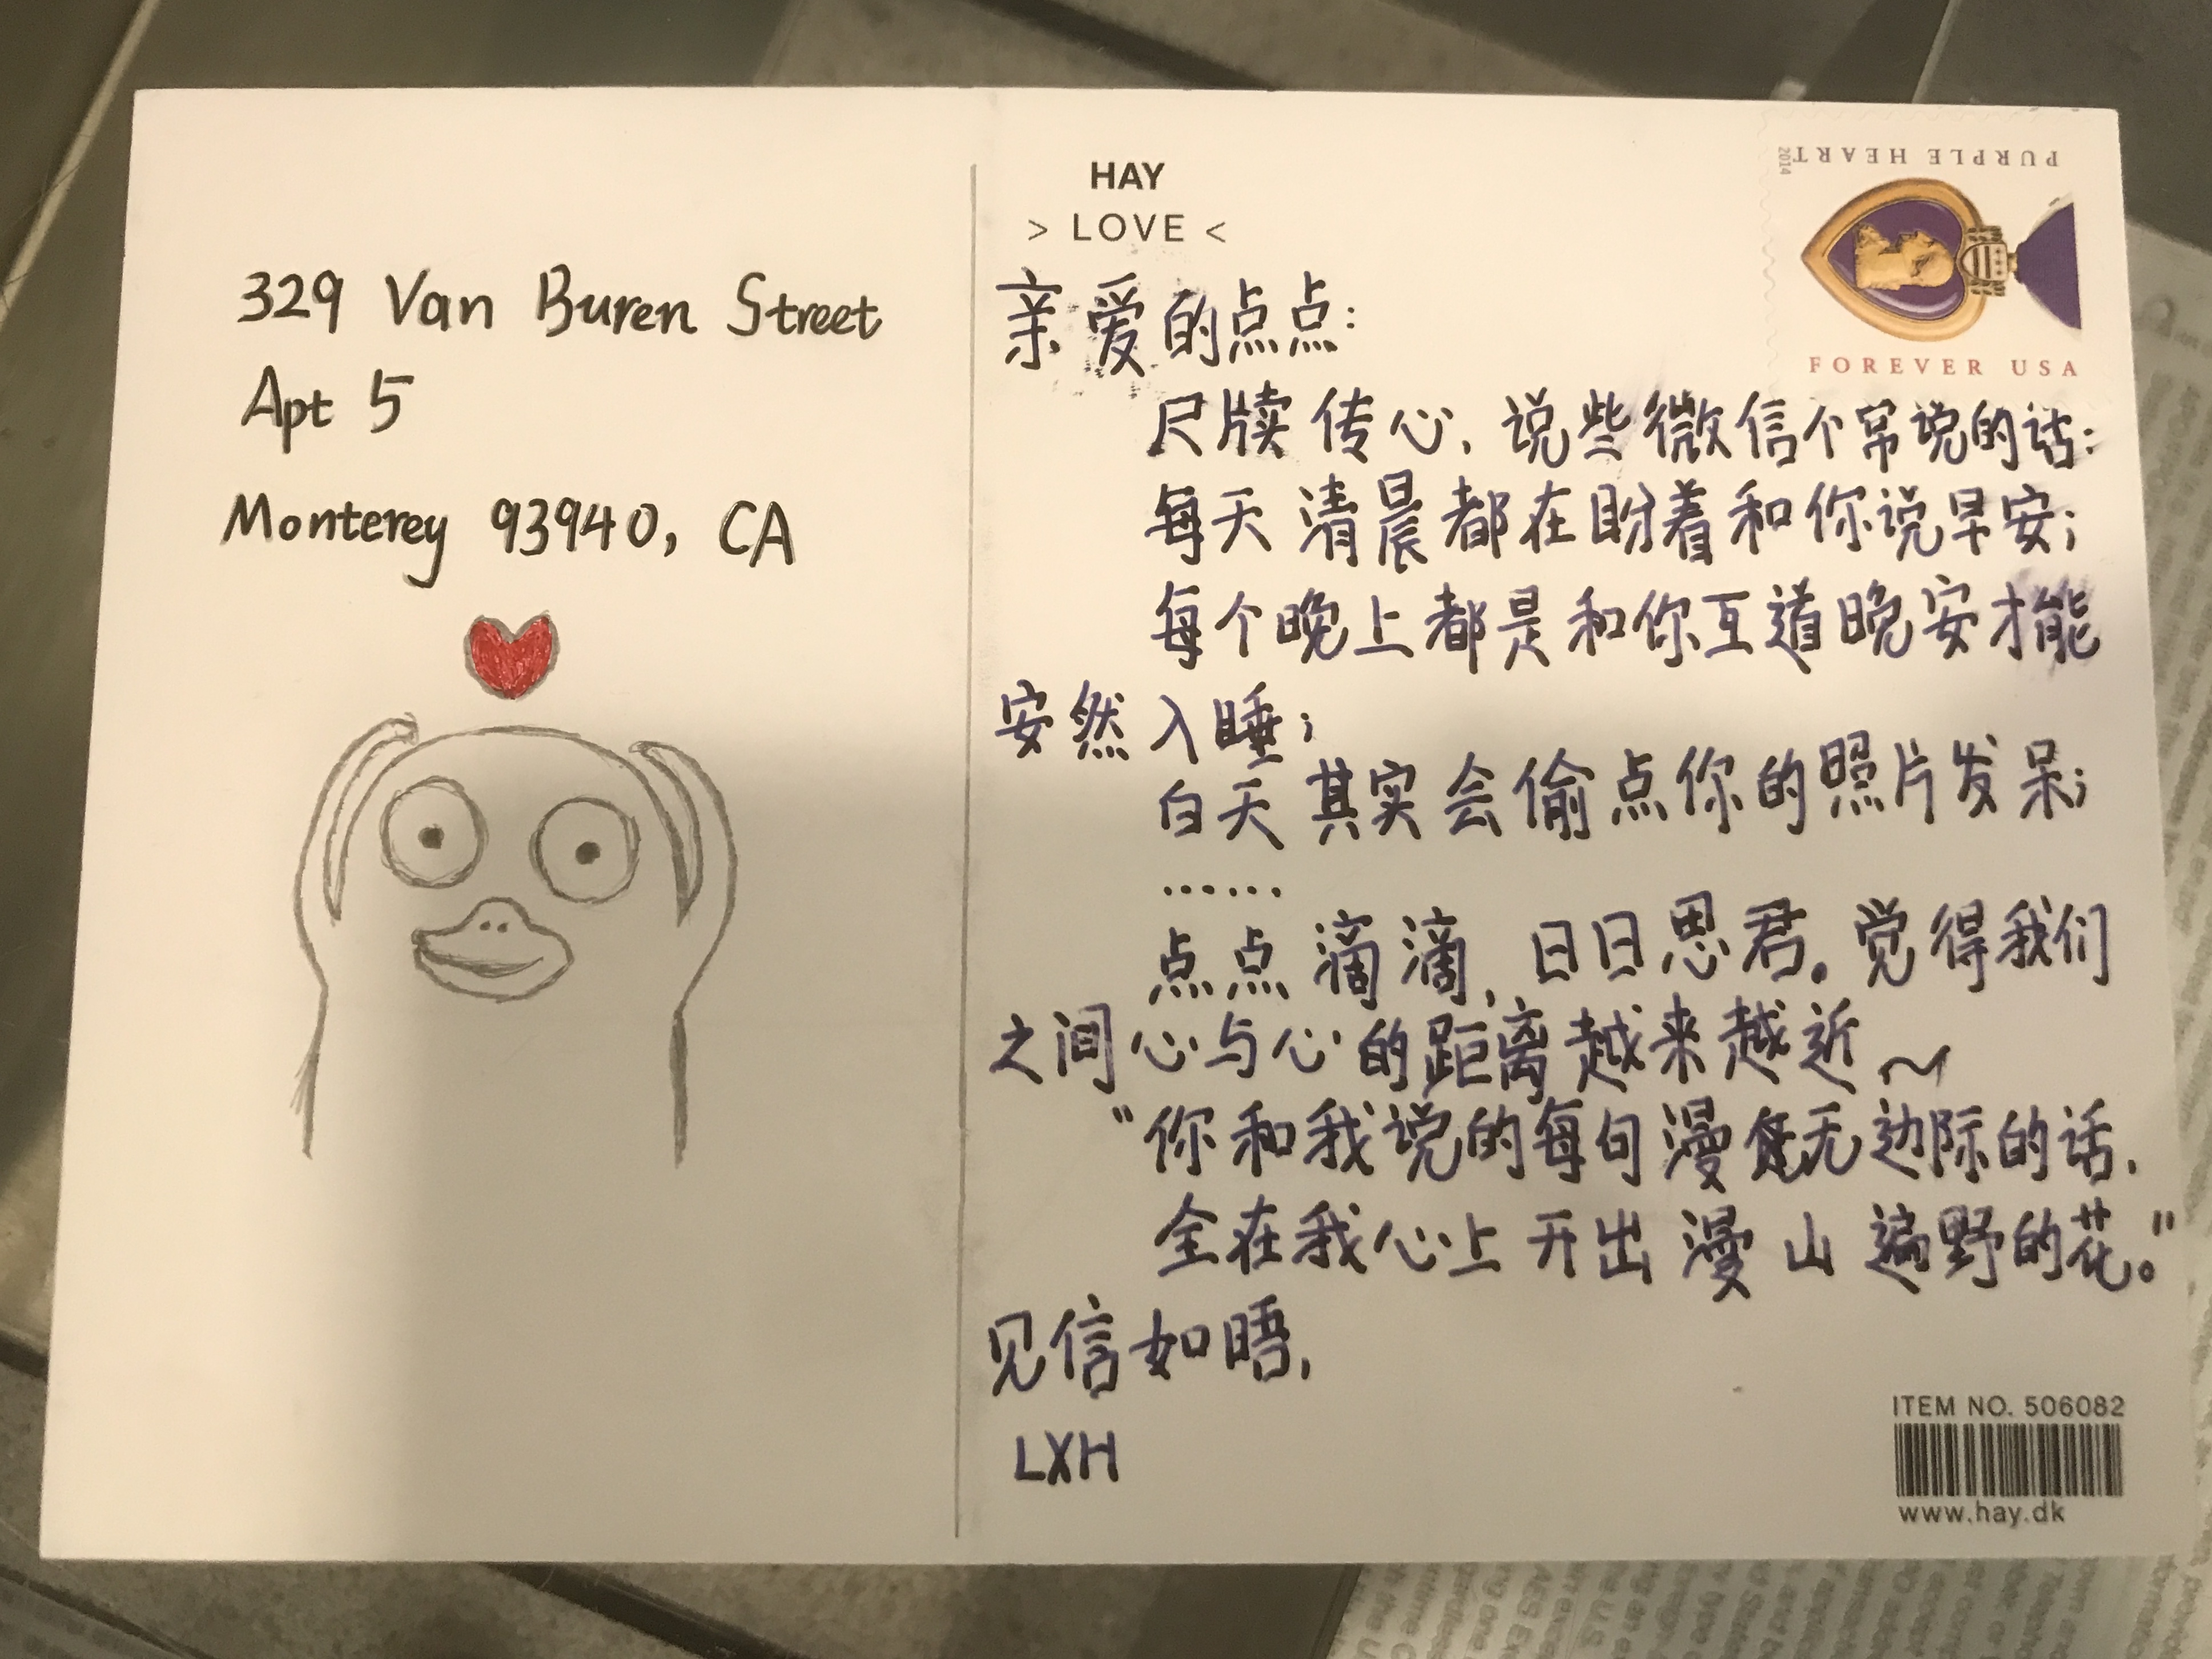 329 Van Buren Street
Apt 5
Monterey 93940, CA
HAY
> LOVE <
PURPLE HEART
2014
FOREVER USA
亲爱的点点：
尺牍传心，说些微信个常说的话：
每天清晨都在盼着和你说早安；
每个晚上都是和你互道晚安才能
安然入睡；
白天其实会偷点你的照片发呆；
……
点点滴滴，日日思君。觉得我们
之间心与心的距离越来越近～
“你和我说的每句漫无边际的话，
全在我心上开出漫山遍野的花。”
见信如晤，
LXH
ITEM NO. 506082
www.hay.dk